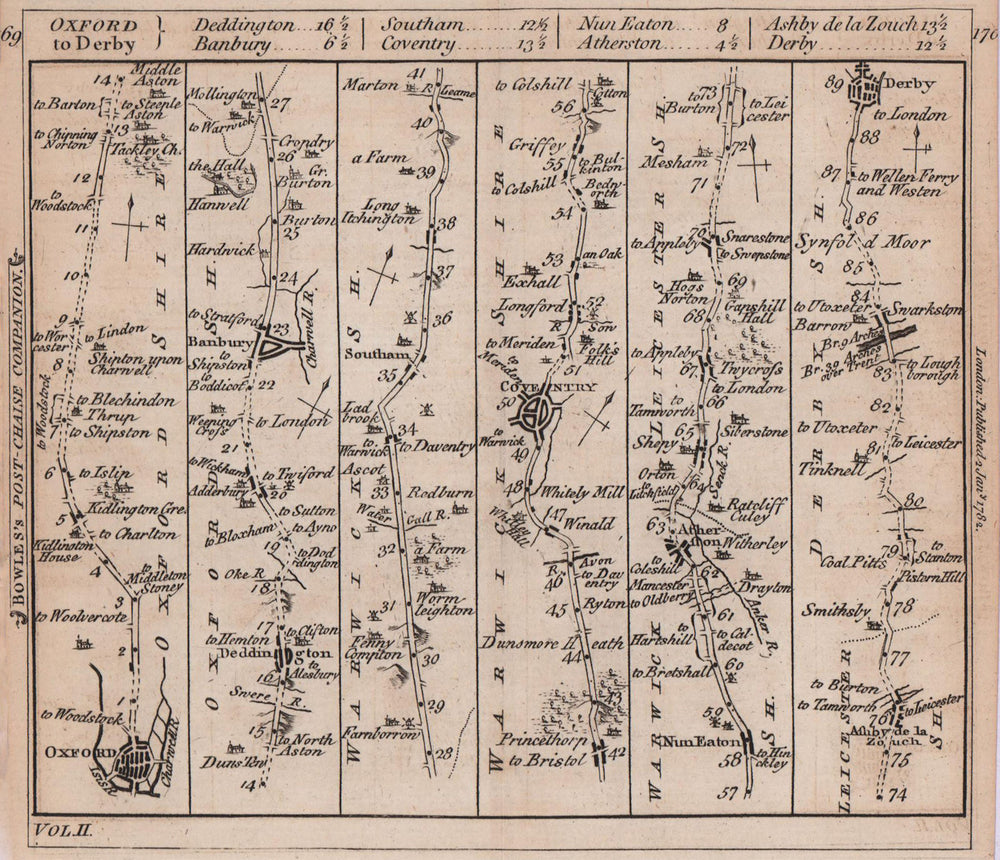 69
OXFORD
to Derby
Deddington 16 ½
Banbury 6 ½
Southam 12 ½
Coventry 13 ½
Nun Eaton 8
Atherston 4 ½
Ashby de la Zouch 13 ½
Derby 12 ½
170
BOWLES'S POST-CHAISE COMPANION.
14
Middle
Aston
to Barton
to Steeple
Aston
13
to Chipping
Norton
Tackley Ch.
12
to
Woodstock
11
10
9
to Wor
cester
to Lindon
8
Shipton upon
Charwell
to Woodstock
to Blechindon
Thrup
to Shipston
6
to Islip
Kidlington Gre.
5
to Charlton
Kidlington
House
4
to Middleton
Stoney
3
to Woolvercote
2
1
to Woodstock
OXFORD
Isis R.
Charwell R.
OXFORDSHIRE
Mollington
27
to Warwick
Crondry
26
the Hall
Gr.
Burton
Hanwell
Burton
25
Hardwick
24
to Stratford
23
Banbury
Charwell R.
to
Shipston
to
Boddicot
22
Weening
Cross
to London
21
to Wickham
to Twiford
Adderbury
20
to Sutton
to Bloxham
to Ayno
19
to Dod
dington
Oke R.
18
17
to Clifton
to Hemton
Deddington
to
Alesbury
16
Swere
R.
15
to North
Aston
Duns Tew
14
OXFORDSH.
41
Marton
R
Leame
40
a Farm
39
Long
Itchington
38
37
36
Southam
35
Lad
brook
34
to
Warwick
to Daventry
Ascot
33
Rodburn
Water
Gall R.
32
a Farm
31
Worm
leighton
Fenny
Compton
30
29
Farnborrow
28
WARWICKSH.
to Colshill
Cotton
56
Griffey
55
to Bul
kinton
to
Colshill
Bedw
orth
54
53
an Oak
Exhall
Longford
52
R
Sow
to Meriden
Folk's
Hill
51
to
Meriden
COVENTRY
50
to
Warwick
49
48
Whitely Mill
47
Winald
Avon
R
46
to Dav
entry
45
Ryton
Dunsmore Heath
44
43
Princethorp
to Bristol
42
WARWICKSHIRE
to
Burton
73
to Lei
cester
72
Mesham
71
70
to Appleby
Snarestone
to Swepstone
69
Hogs
Norton
Gapshill
Hall
68
to Appleby
Twycross
67
to London
66
to
Tamworth
65
Siberstone
Shepy
Orton
to
Litchfield
64
Senck R.
Ratcliff
Culey
63
Ather
ston
Witherley
to
Coleshill
62
Mancester
to Oldberry
Drayton
Anker R.
61
to
Hartshill
to Cal
decot
to Bretshall
60
59
Nun Eaton
58
to Hin
ckley
57
WARWICKSH.
LEICESTERSH.
89
Derby
to London
88
87
to Wellen Ferry
and Westen
86
Synfold Moor
85
84
to Utoxeter
Swarkston
Barrow
Br. 9 Arches
Br. 30 Arches
over Trent
83
to Lough
borough
82
to Utoxeter
81
to Leicester
Tinknell
80
79
to
Stanton
Coal Pitts
Pistern Hill
78
Smithsby
77
to Bierton
to Tamworth
to Leicester
76
Ashby de la
Zouch
75
74
DERBYSH.
LEICESTERSH.
London: Published 2 Jany. 1782.
VOL. II.